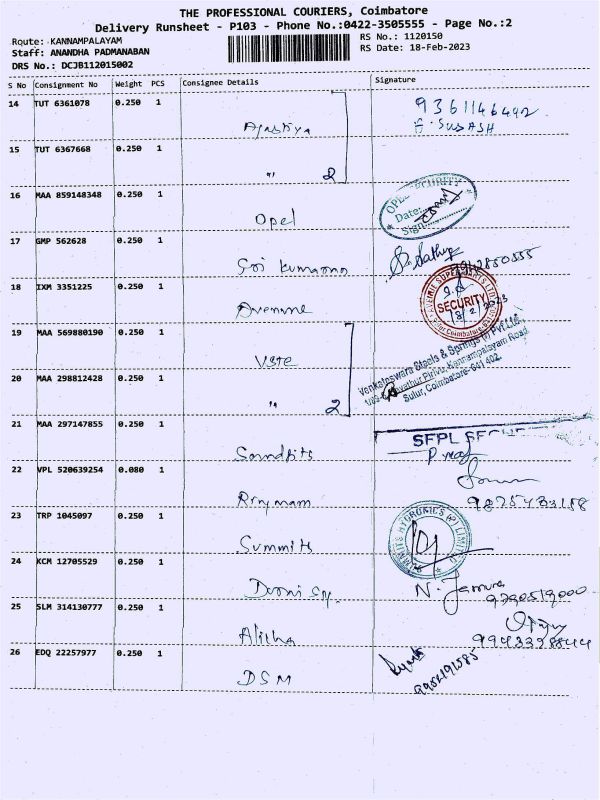 THE PROFESSIONAL COURIERS, Coimbatore
Delivery Runsheet - P103 - Phone No.:0422-3505555 - Page No.:2
Route: KANNAMPALAYAM
RS No.: 1120150
Staff: ANANDHA PADMANABAN
RS Date: 18-Feb-2023
DRS No.: DCJB112015002
S No Consignment No Weight PCS Consignee Details Signature
14 TUT 6361078 0.250 1
9361146492
SUBASH
15 TUT 6367668 0.250 1
" 2
16 MAA 859148348 0.250 1
Opel
OPEL SECURITY
Date:
Sign
17 GMP 562628 0.250 1
Sri Kumaran
18 IXM 3351225 0.250 1
Avenue
SECURITY
18/2/2023
19 MAA 569880190 0.250 1
VSTE
Venkateswara Steels & Springs (I) Pvt Ltd.
Kannampalayam Road,
Sulur, Coimbatore-641 402.
20 MAA 298812428 0.250 1
" 2
21 MAA 297147855 0.250 1
Soundfits
SFPL
22 VPL 520639254 0.080 1
23 TRP 1045097 0.250 1
Summits
SUMMITS HYDRONICS (P) LIMITED
24 KCM 12705529 0.250 1
N.
25 SLM 314130777 0.250 1
26 EDQ 22257977 0.250 1
DSM